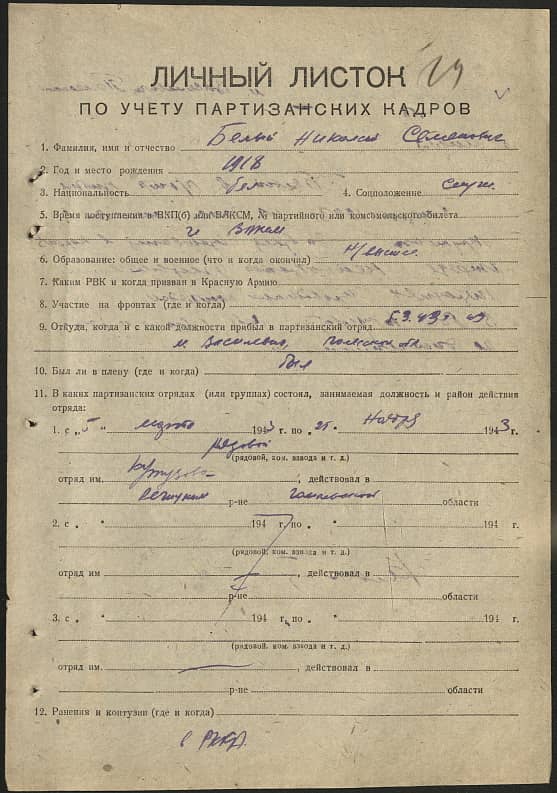 ЛИЧНЫЙ ЛИСТОК
ПО УЧЕТУ ПАРТИЗАНСКИХ КАДРОВ
1. Фамилия, имя и отчество Белый Николай Семенович
2. Год и место рождения 1918
3. Национальность бел 4. Соцположение служ.
5. Время поступления в ВКП(б) или ВЛКСМ, № партийного или комсомольского билета
6. Образование: общее и военное (что и когда окончил) н/высш.
7. Каким РВК и когда призван в Красную Армию
8. Участие на фронтах (где и когда)
9. Откуда, когда и с какой должности прибыл в партизанский отряд 5.3.43 г. из
10. Был ли в плену (где и когда) был
11. В каких партизанских отрядах (или группах) состоял, занимаемая должность и район действия
отряда:
1. с „5" марта 1943 г. по „25" ноября 1943 г.
рядовой
(рядовой, ком. взвода и т. д.)
отряд им. Кутузова, действовал в
Речицком р-не Гомельской области
2. с „ " 194 г. по „ " 194 г.
(рядовой, ком. взвода и т. д.)
отряд им , действовал в
р-не области
3. с „ " 194 г. по „ " 194 г.
(рядовой, ком. взвода и т. д.)
отряд им. , действовал в
р-не области
12. Ранения и контузии (где и когда)
в РККА